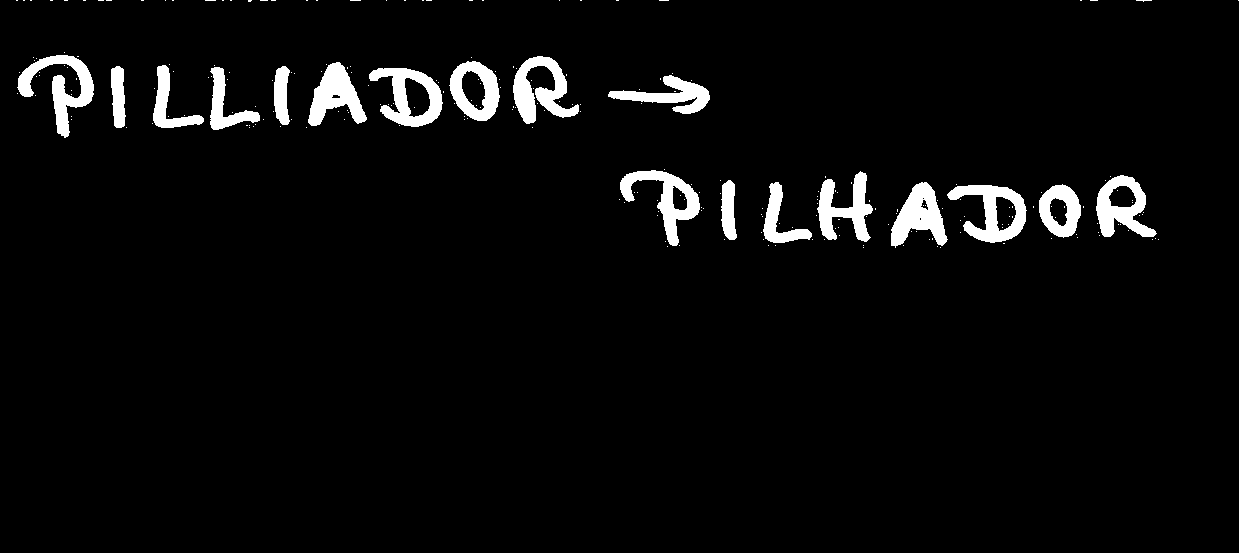 PILLIADOR →
PILHADOR